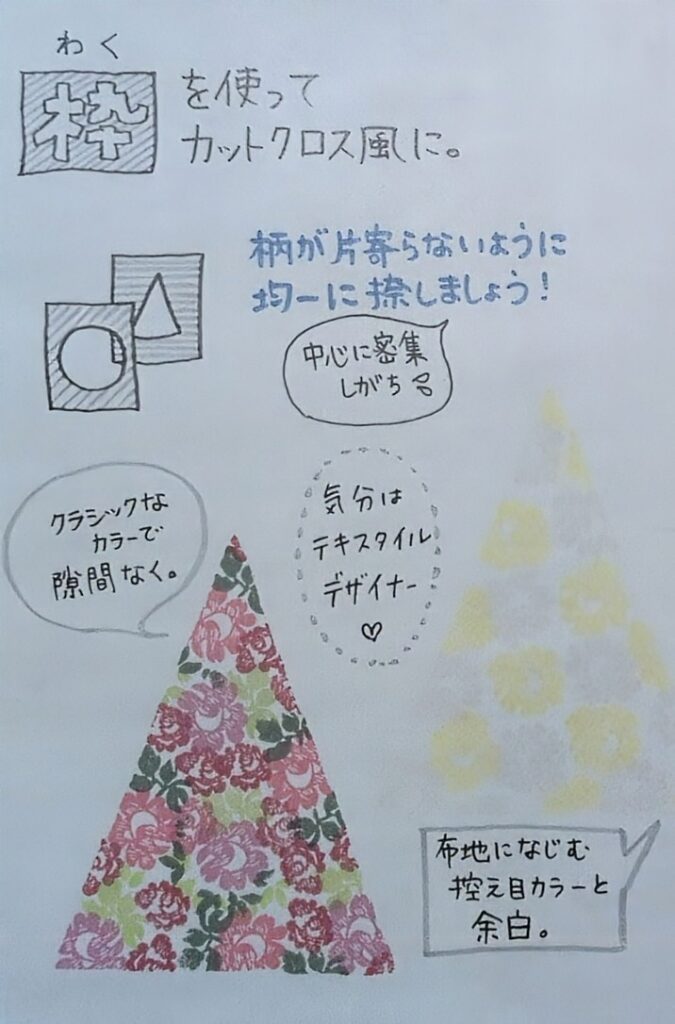 わく
枠を使って
カットクロス風に。
柄が片寄らないように
均一に捺しましょう!
中心に密集
しがち
クラシックな
カラーで
隙間なく。
気分は
テキスタイル
デザイナー
♡
布地になじむ
控え目カラーと
余白。